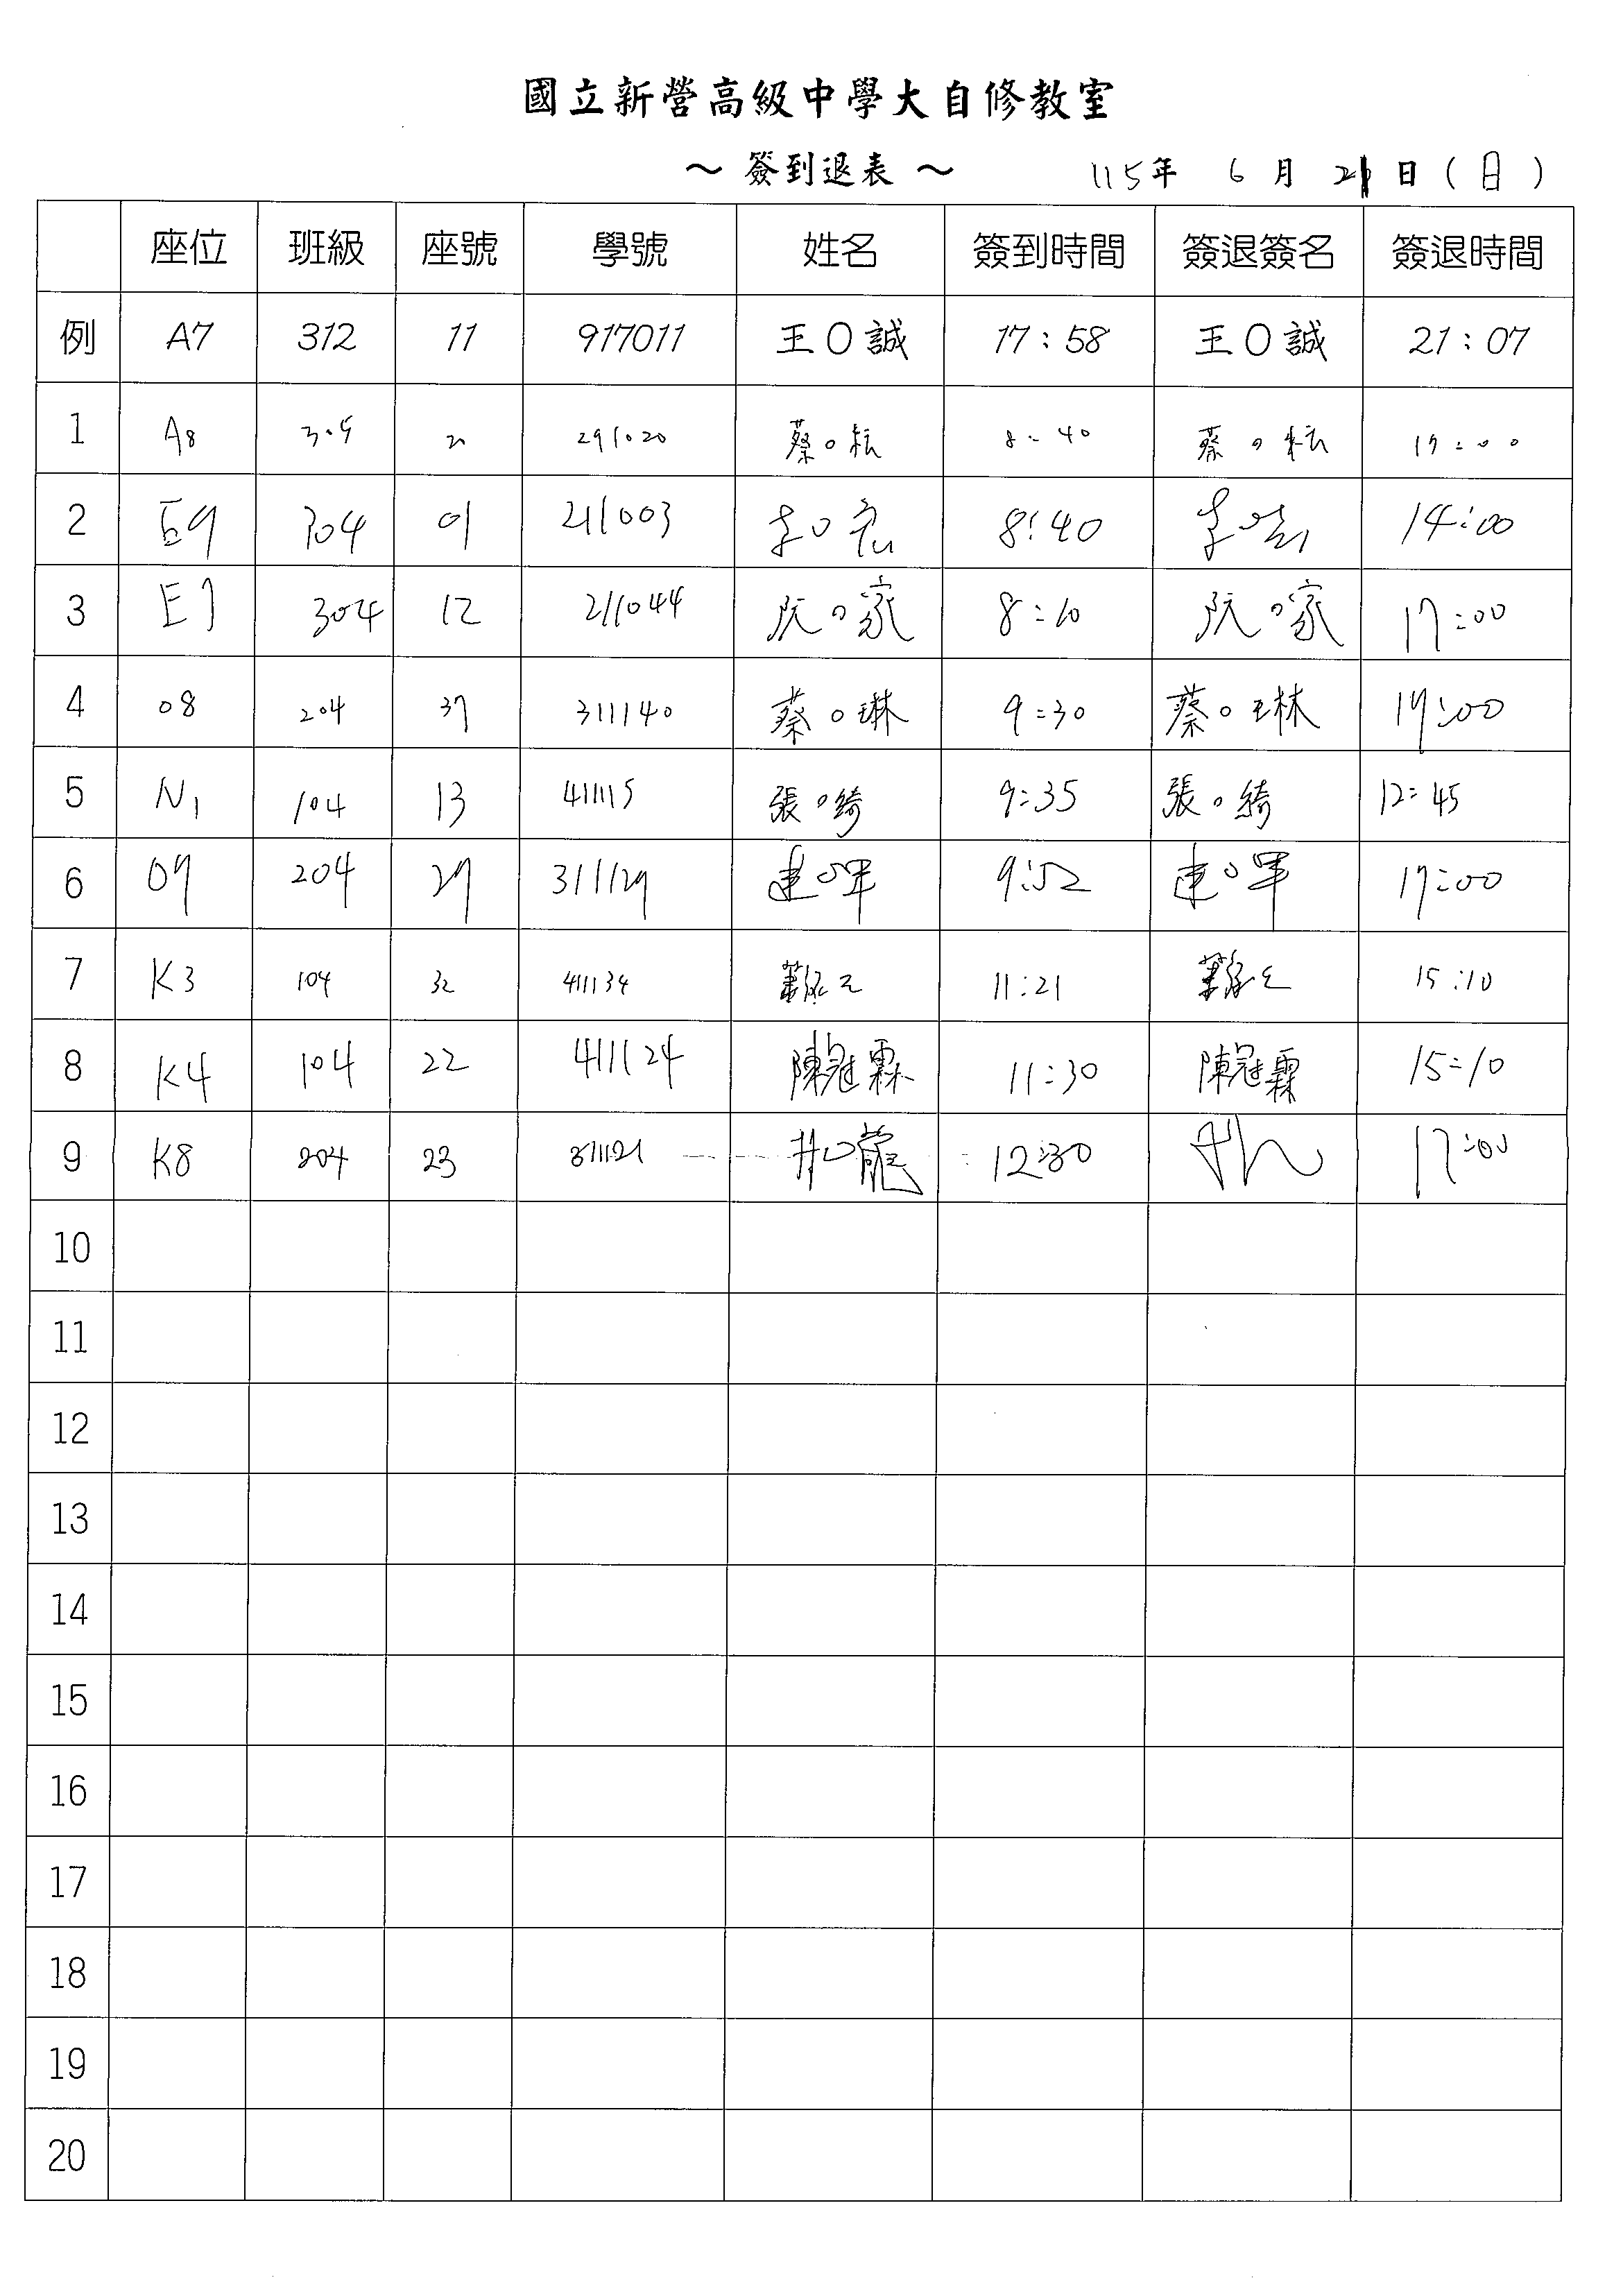 國立新營高級中學大自修教室
～ 簽到退表 ～ 115年 6 月 21 日 ( 日 )
座位 班級 座號 學號 姓名 簽到時間 簽退簽名 簽退時間
例 A7 312 11 917011 王O誠 17:58 王O誠 21:07
1 A8 蔡O耘 8:40 蔡O耘 17:00
2 E9 304 01 211003 李O宏 8:40 14:00
3 E7 304 12 211044 阮O家 8:10 阮O家 17:00
4 O8 204 37 311140 蔡O琳 9:30 蔡O琳 17:00
5 N1 104 13 411115 張O綺 9:35 張O綺 12:45
6 O9 204 29 311129 9:52 17:00
7 K3 104 32 411134 11:21 15:10
8 K4 104 22 411124 陳冠霖 11:30 陳冠霖 15:10
9 K8 204 23 311121 12:30 17:00
10
11
12
13
14
15
16
17
18
19
20